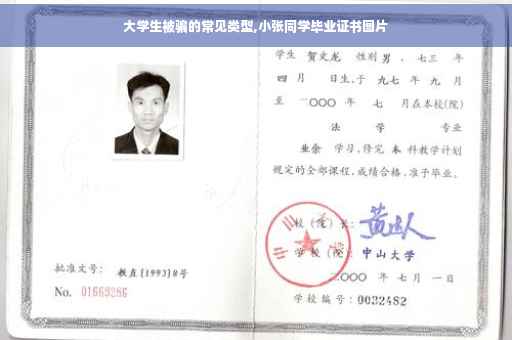 大学生被骗的常见类型,小张同学毕业证书图片
学生 贺文龙 性别 男 、七三 年
四 月 日生,于 九七 年 九 月
至 二〇〇〇 年 七 月在本校(院)
法 学 专业
业余 学习,修完 本 科教学计划
规定的全部课程,成绩合格,准予毕业。
校(院)长:
学校(院): 中山大学
二〇〇〇 年 七 月 一 日
批准文号: 教直[1993]8号
No. 01669286
学校编号: 0032482